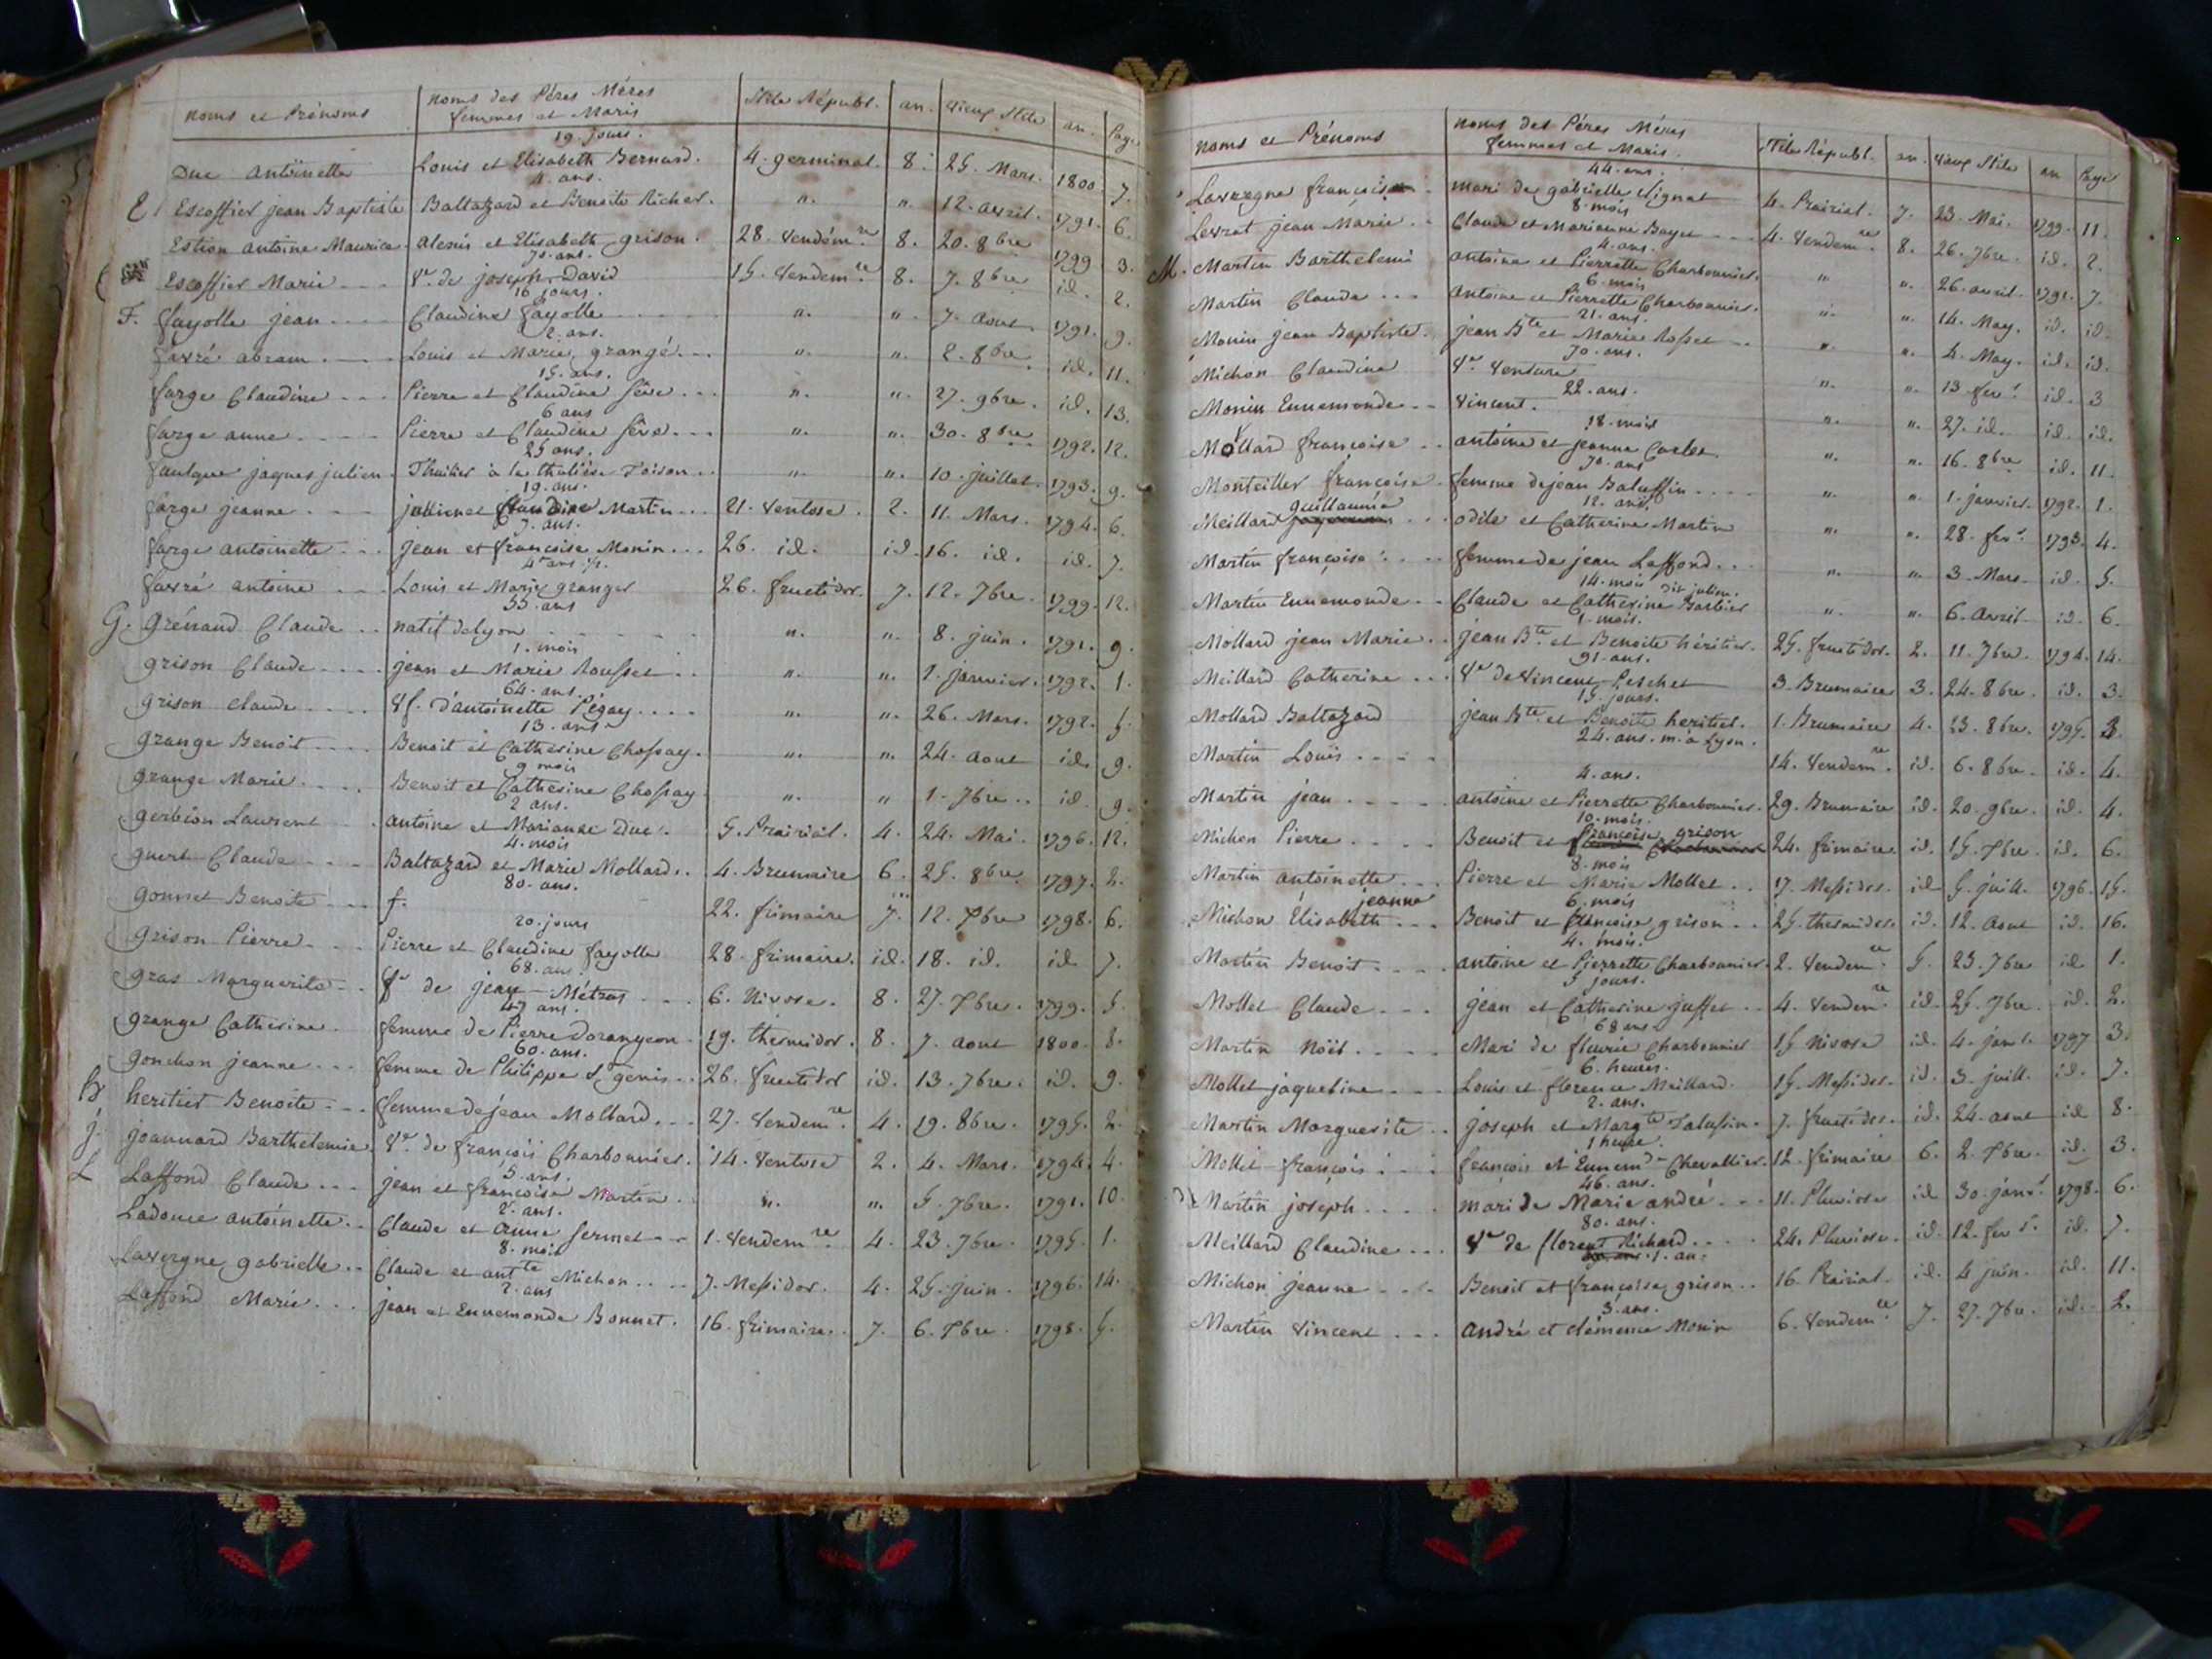 noms et Prénoms noms des Péres Méres femmes et Maris Stile Républ. an. vieux Stile an. Page
19. jours.
Duc antoinette Louis et Elisabeth Bernard. 4. germinal. 8. 25. Mars. 1800. 7.
4. ans.
E Escoffier jean Baptiste Baltazard et Benoite Richer. ". ". 12. avril. 1791. 6.
Estion antoine Maurice alexis et Elisabeth grison. 28. Vendém.re 8. 20. 8bre 1799 3.
70. ans.
Escoffier Marie Ve. de joseph David 15. Vendem.re 8. 7. 8bre id. 2.
16 jours.
F. fayolle jean Claudine fayolle ". ". 7. aout 1791. 9.
2. ans.
favré abram Louis et Marie grangé ". ". 2. 8bre id. 11.
15. ans.
farge Claudine Pierre et Claudine Séve ". ". 27. 9bre. id. 13.
6 ans
farge anne Pierre et Claudine Séve ". ". 30. 8bre 1792. 12.
25 ans.
faulque jaques julien Thuilier à la thuliére Toison ". ". 10. juillet. 1793. 9.
19. ans.
farge jeanne jullien et Claudine Martin 21. Ventose. 2. 11. Mars. 1794. 6.
7. ans.
farge antoinette jean et françoise Monin 26. id. id. 16. id. id. 7.
4 ans ½.
favré antoine Louis et Marie granger 26. fructidor. 7. 12. 7bre. 1799. 12.
55. ans
G. Grénaud Claude natif de lyon ". ". 8. juin. 1791. 9.
1. mois
grison Claude jean et Marie Rousset ". ". 1. janvier. 1792. 1.
64. ans.
grison claude Vf. d'antoinette Pégay ". ". 26. Mars. 1792. 5.
13. ans
grange Benoit Benoit et Catherine Chossay. ". ". 24. aout id. 9.
9 mois
grange Marie Benoit et Catherine Chossay ". " 1. 7bre. id. 9.
2 ans.
gerbion Laurent antoine et Marianne Duc. 5. Prairial. 4. 24. Mai. 1796. 12.
4. mois
guert Claude Baltazard et Marie Mollard. 4. Brumaire 6. 25. 8bre 1797. 2.
80. ans.
gonnet Benoite f. 22. frimaire 7. 12. Xbre 1798. 6.
20. jours
grison Pierre Pierre et Claudine fayolle 28. frimaire. id. 18. id. id. 7.
68. ans.
gras Marguerite Ve de jean Métras 6. Nivose. 8. 27. Xbre. 1799. 5.
47 ans.
grange Catherine femme de Pierre Dorangeon. 19. thermidor. 8. 7. aout 1800. 8.
60. ans.
gonchon jeanne femme de Philippe St. genis. 26. fructidor id. 13. 7bre. id. 9.
H heritier Benoite femme de jean Mollard. 27. Vendem.re 4. 19. 8bre. 1795. 2.
j. joannard Barthelemie Ve. de françois Charbonnier. 14. Ventose 2. 4. Mars. 1794. 4.
5. ans.
L Laffond Claude jean et françoise Martin. ". ". 5. 7bre. 1791. 10.
2. ans.
Ladouce antoinette Claude et anne fermet 1. Vendem.re 4. 23. 7bre. 1795. 1.
8. mois
Lavergne gabrielle Claude et ant.te Michon 7. Messidor. 4. 25. juin. 1796. 14.
2. ans
Laffond Marie jean et Ennemonde Bonnet. 16. frimaire. 7. 6. Xbre. 1798. 5.
noms et Prénoms noms des Péres Méres femmes et Maris. Stile Républ. an. vieux Stile an Page
44. ans.
Lavergne françois mari de gabrielle Vignat 4. Prairial. 7. 23. Mai. 1799. 11.
8. mois
Levrat jean Marie Claude et Marianne Boyer 4. Vendem.re 8. 26. 7bre. id. 2.
4. ans.
M. Martin Barthelemi antoine et Pierrette Charbonnier. " ". 26. avril. 1791. 7.
6. mois
Martin Claude antoine et Pierrette Charbonnier. ". ". 14. May. id. id.
21. ans.
Monin jean Baptiste. jean Bte et Marie Rosset ". ". 4. May. id. id.
70. ans.
Michon Claudine Ve. Venture ". ". 13. fevr. id. 3
22. ans.
Monin Ennemonde Vincent. ". ". 27. id. id. id.
18. mois
Mollard françoise antoine et jeanne ". ". 16. 8bre id. 11.
70. ans
Monteiller françoise femme de jean Baluffin ". ". 1. janvier. 1792. 1.
12. ans.
Meillard guillaumé odile et Catherine Martin " ". 28. fevr. 1793. 4.
Martin françoise femme de jean Laffond ". ". 3. Mars. id. 5.
14. mois dit julien.
Martin Ennemonde Claude et Catherine Barbier ". ". 6. avril. id. 6.
1. mois.
Mollard jean Marie jean Bte. et Benoite héritier. 25. fructidor. 2. 11. 7bre. 1794. 14.
91. ans.
Meillard Catherine Ve de Vincent Peschet 3. Brumaire 3. 24. 8bre. id. 3.
15. jours.
Mollard Baltazard jean Bte. et Benoite heritier. 1. Brumaire 4. 23. 8bre. 1795. 3.
24. ans. m. à Lyon.
Martin Louis 14. Vendem.re id. 6. 8bre. id. 4.
4. ans.
Martin jean antoine et Pierrette Charbonnier. 29. Brumaire id. 20. 9bre. id. 4.
10. mois.
Michon Pierre Benoit et françoise grison 24. frimaire. id. 15. Xbre. id. 6.
8. mois
Martin antoinette Pierre et Marie Mollet 17. Messidor. id 5. juill. 1796. 15.
jeanne 6. mois
Michon Élisabeth Benoit et françoise grison 25. thermidor. id. 12. aout id. 16.
4. mois.
Martin Benoit antoine et Pierrette Charbonnier. 2. Vendem.re 5. 23. 7bre id. 1.
5 jours.
Mollet Claude jean et Catherine juffet 4. Vendem.re id. 25. 7bre. id. 2.
68 ans
Martin Noël Mari de fleurie Charbonnier 15 Nivose id. 4. janv. 1797 3.
6. heures.
Mollet jaqueline Louis et florence Meillard. 15. Messidor. id. 3. juill. id. 7.
2. ans.
Martin Marguerite joseph et Margte Talussin. 7. fructidor. id. 24. aout id 8.
1 heure.
Mollet françois françois et Ennemde Chevallier. 12. frimaire 6. 2. Xbre. id. 3.
46. ans.
Martin joseph mari de Marie andré 11. Pluviose id. 30. janvr. 1798. 6.
80. ans.
Meillard Claudine Ve de florent Richard 24. Pluviose. id. 12. fevr. id. 7.
1. an.
Michon jeanne Benoit et françoise grison 16. Prairial. id. 4 juin. id. 11.
3. ans.
Martin Vincent andré et clémence Monin 6. Vendem.re 7. 27. 7bre. id. 2.